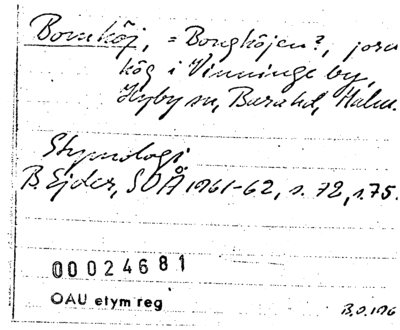 Bomköj, = Bongköjen?, jord
hög i Vinninge by,
Hyby sn, Bara hd, Malm.
Etymologi
B. Ejder, SOÅ 1961-62, s. 72, s. 75.
00024681
OAU etym reg
B.O. 1976